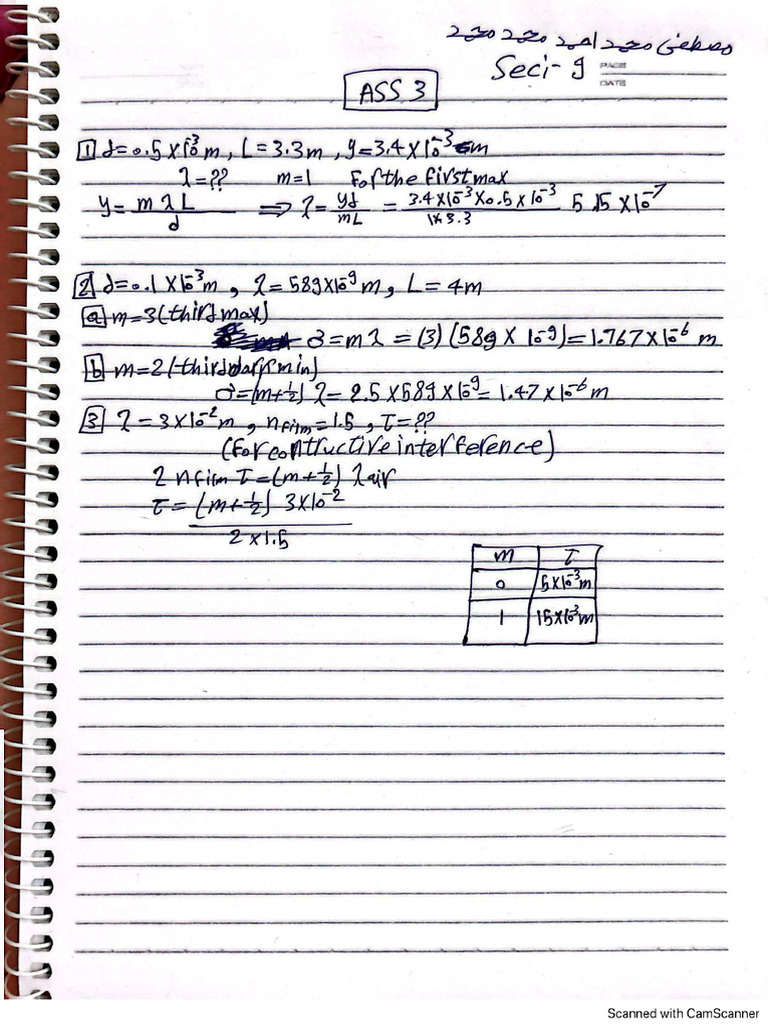 Seci- 9
PAGE
DATE
ASS 3
1 d=0.5×10^-3 m, L=3.3m, y=3.4×10^-3 m
λ=?? m=1 For the first max
y= mλL/d ⟹ λ= yd/mL = 3.4×10^-3×0.5×10^-3/1×3.3 5.15×10^-7
2 d=0.1×10^-3 m, λ=589×10^-9 m, L=4m
a m=3(third max)
δ=mλ=(3)(589×10^-9)=1.767×10^-6 m
b m=2(third dark min)
δ=(m+1/2)λ=2.5×589×10^-9=1.47×10^-6 m
3 λ=3×10^-2 m, n film=1.5, t=??
(For contructive interference)
2 n film t=(m+1/2) λair
t= (m+1/2) 3×10^-2
2×1.5
m t
0 5×10^-3 m
1 15×10^-3 m
Scanned with CamScanner